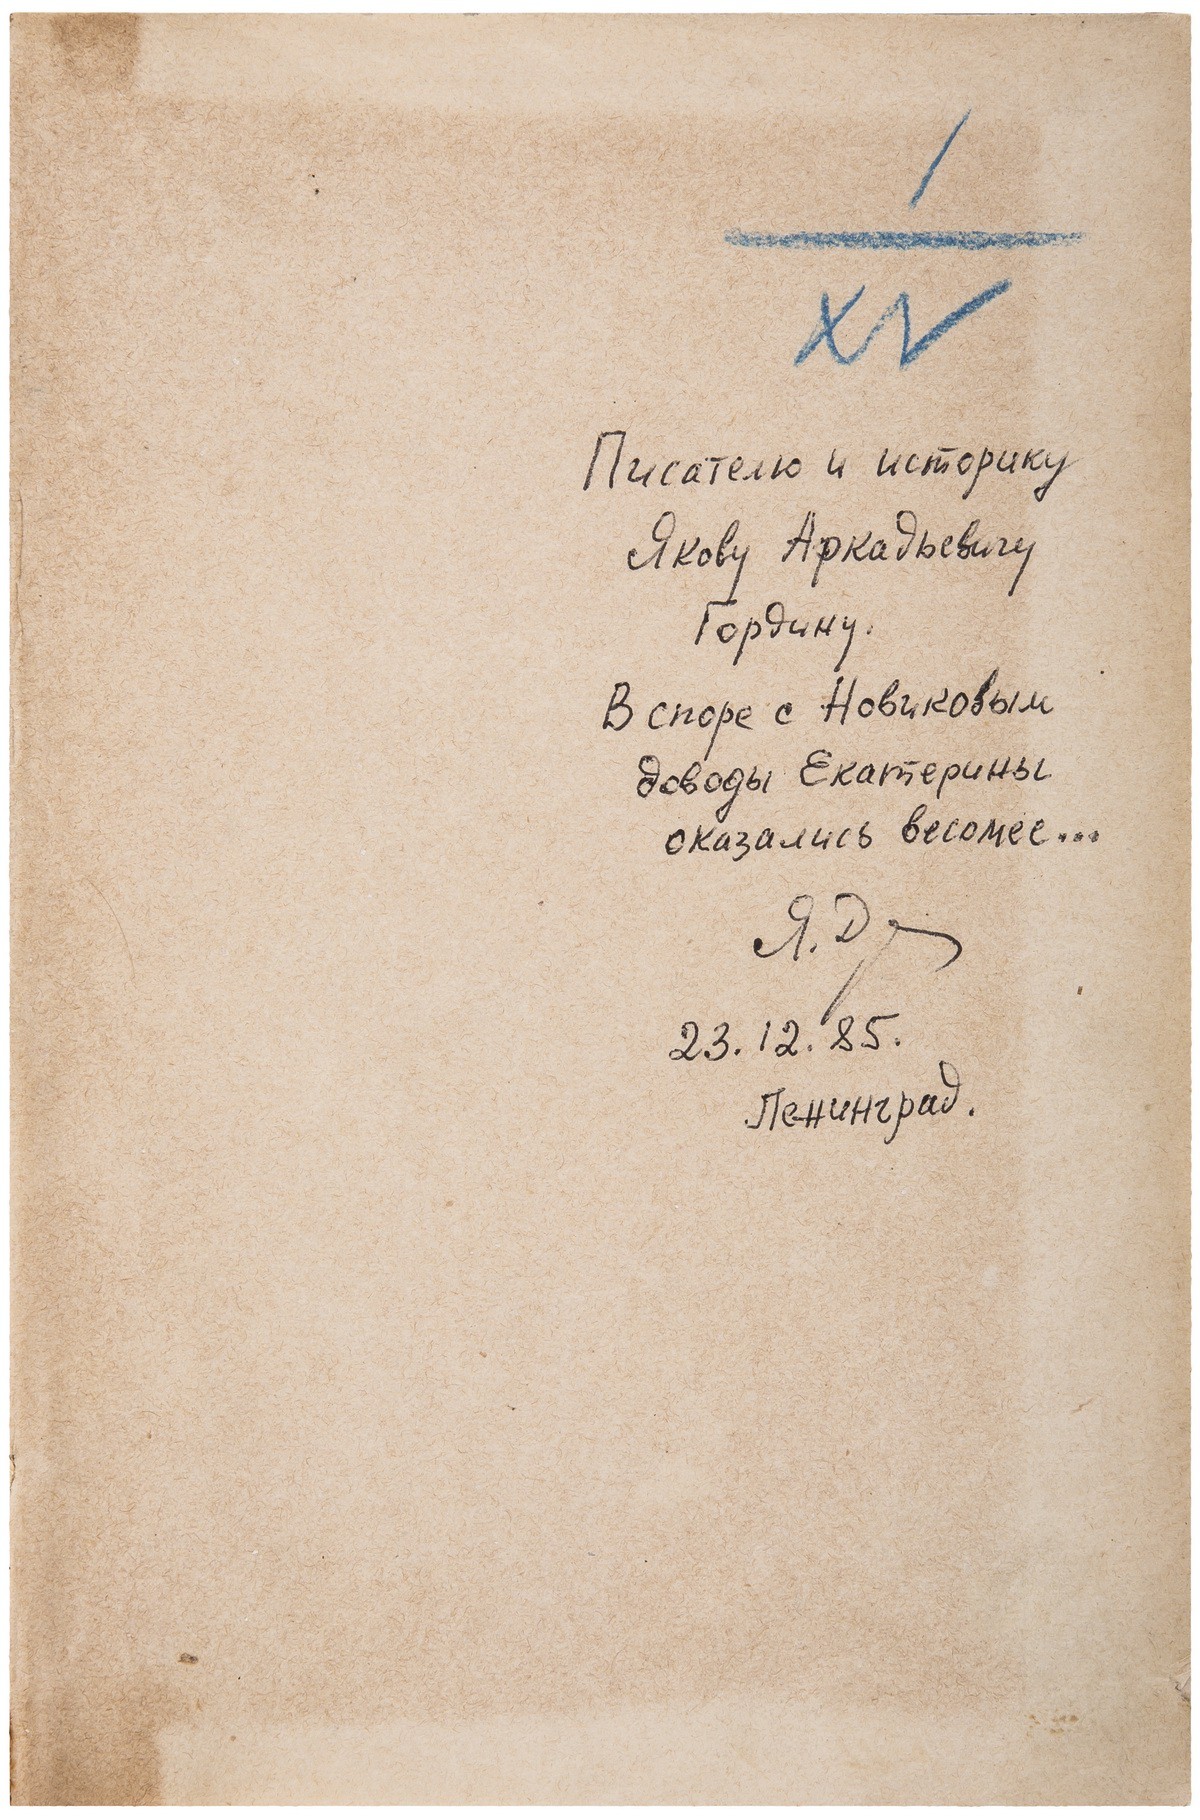 I
XV
Писателю и историку
Якову Аркадьевичу
Гордину.
В споре с Новиковым
доводы Екатерины
оказались весомее...
Я. Д
23.12.85.
Ленинград.